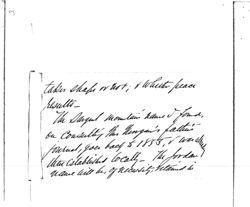 takes shape or not, & whether peace
results—
The Sargent mountain name I found,
on consulting this Kenyon's father's
journal, goes back to 1855, & was
thus established locally — The Jordan
name will be, of necessity, retained in